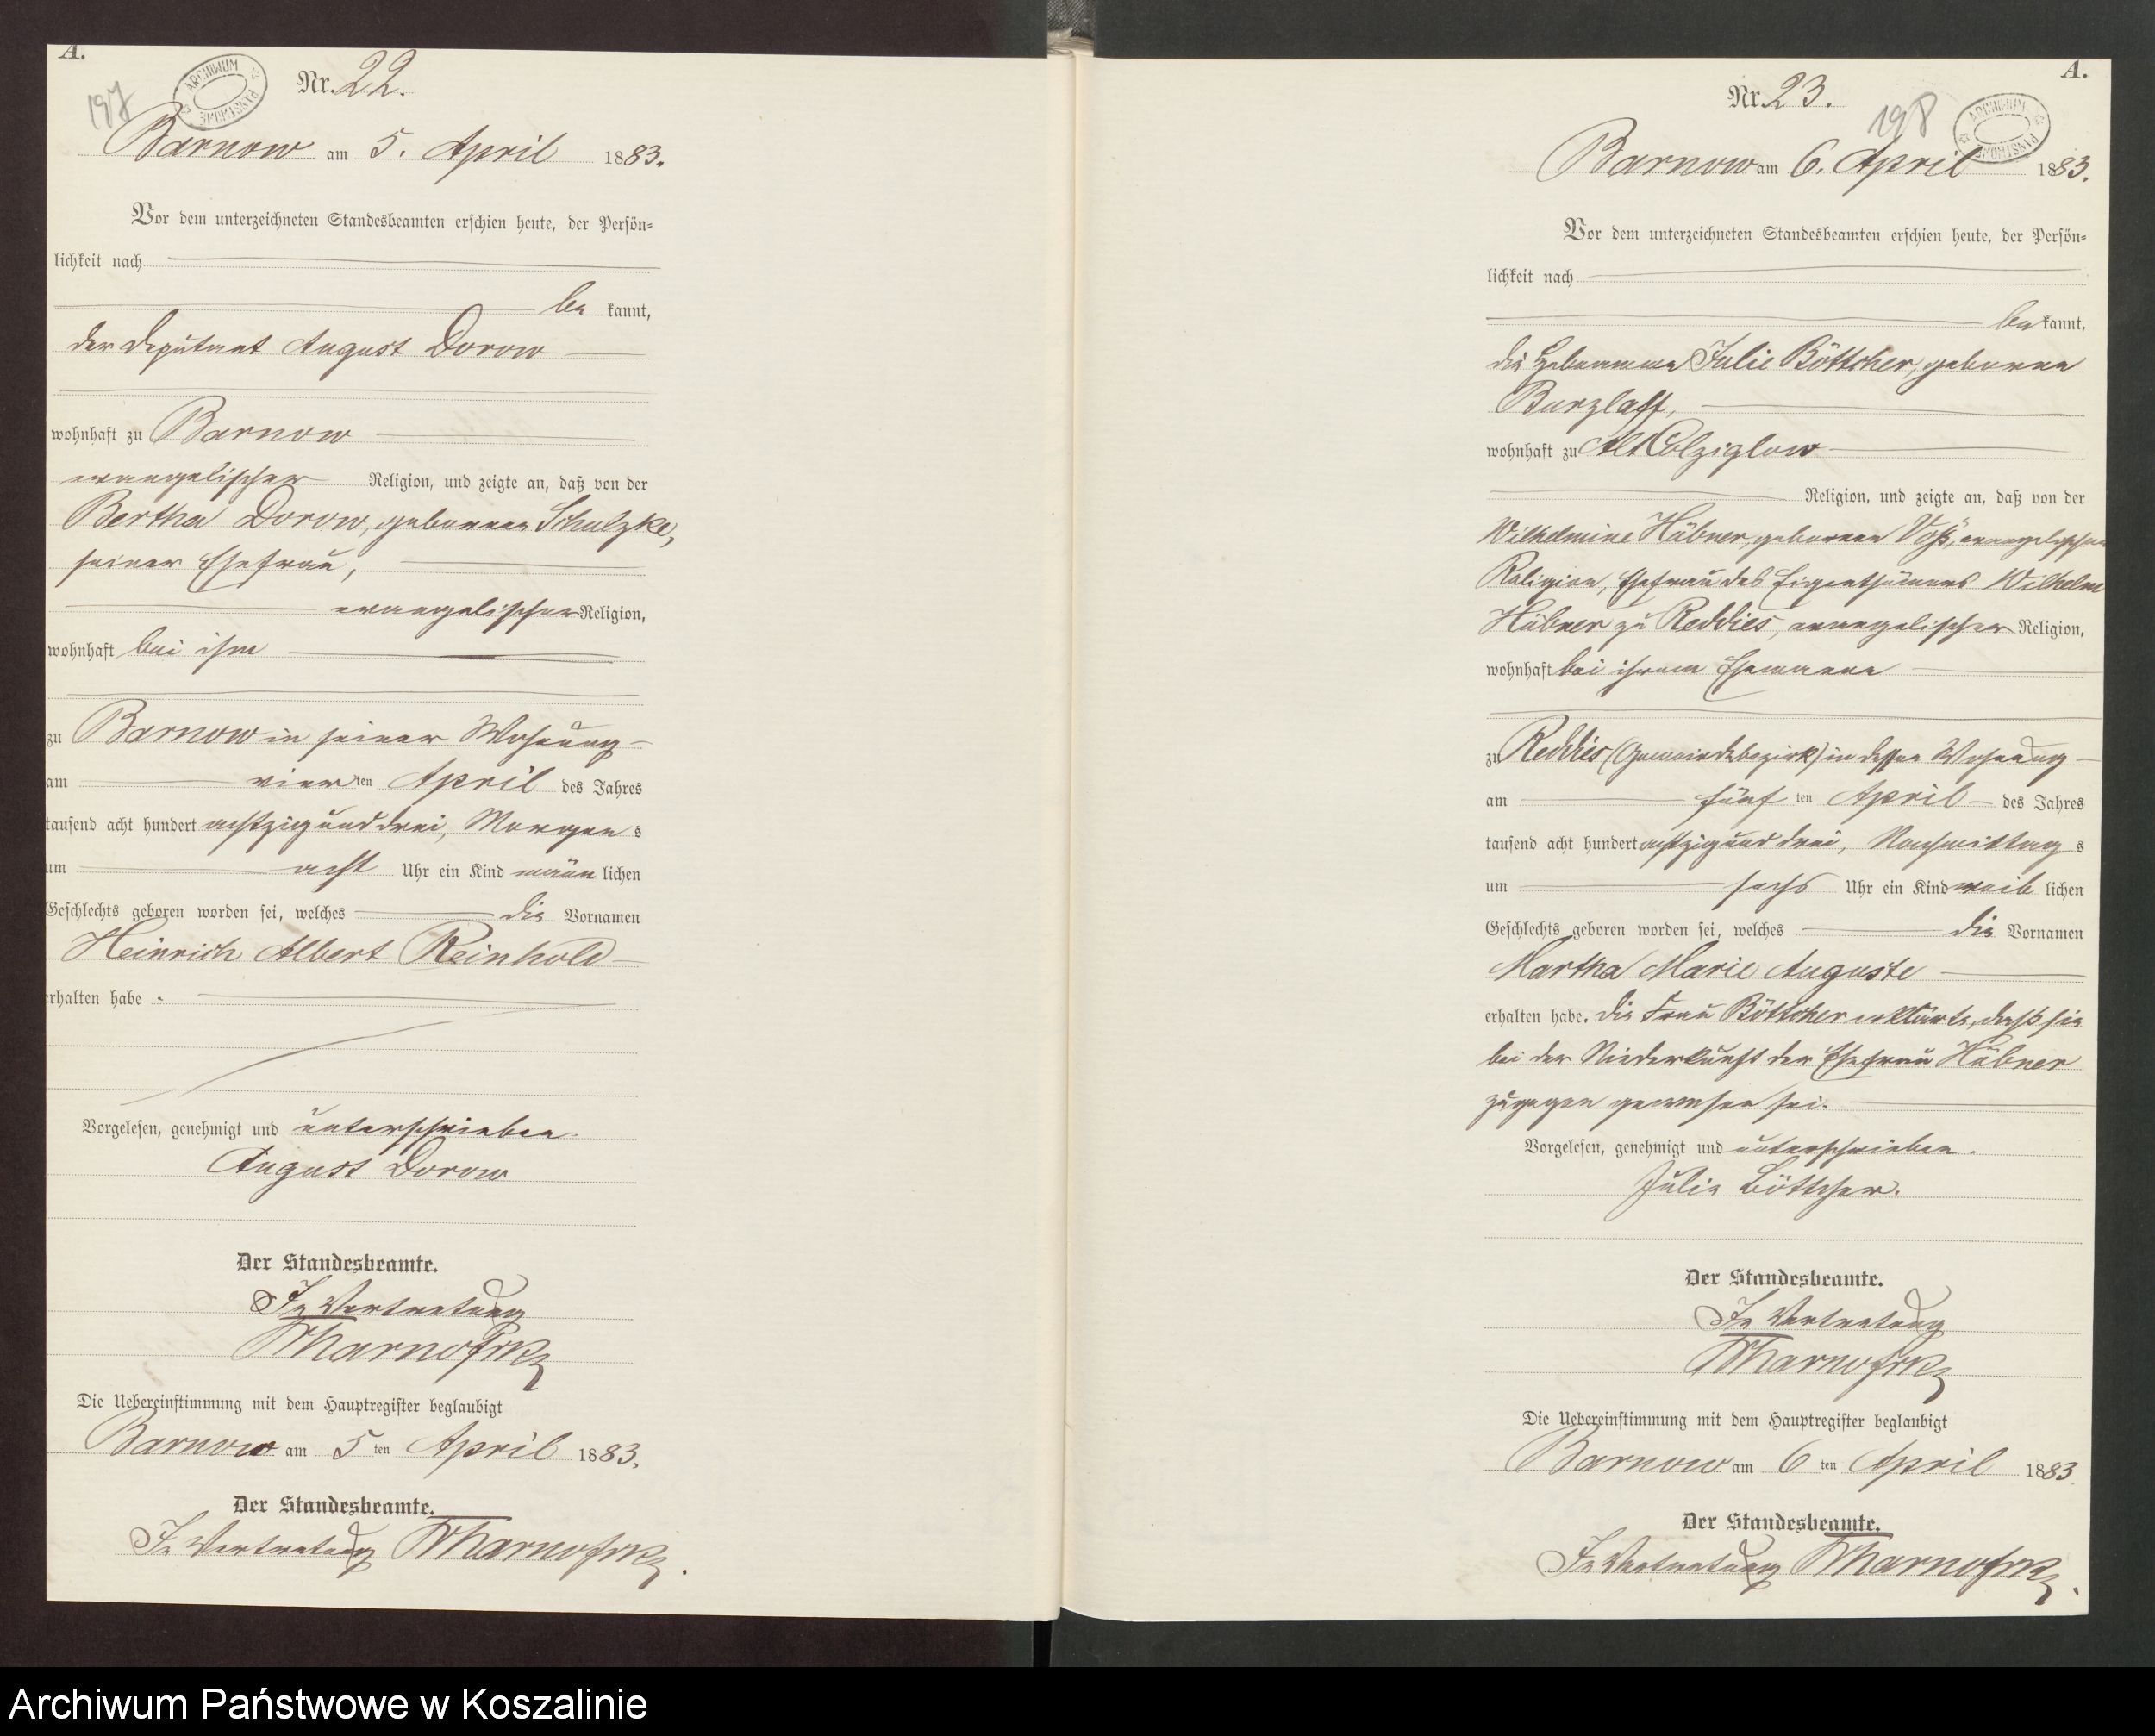 A.
197
ARCHIWUM PAŃSTWOWE
Nr. 22.
Barnow am 5. April 1883.
Vor dem unterzeichneten Standesbeamten erschien heute, der Persön-
lichkeit nach
be kannt,
der Deputant August Dorow
wohnhaft zu Barnow
evangelischer Religion, und zeigte an, daß von der
Bertha Dorow, geborenen Schulzke,
seiner Ehefrau,
evangelischer Religion,
wohnhaft bei ihm
zu Barnow in seiner Wohnung
am vier ten April des Jahres
tausend acht hundert achtzig und drei, Morgen s
um acht Uhr ein Kind männ lichen
Geschlechts geboren worden sei, welches die Vornamen
Heinrich Albert Reinhold
erhalten habe.
Vorgelesen, genehmigt und unterschrieben.
August Dorow
Der Standesbeamte.
In Vertretung
Die Uebereinstimmung mit dem Hauptregister beglaubigt
Barnow am 5 ten April 1883.
Der Standesbeamte.
In Vertretung
A.
Nr. 23.
198
ARCHIWUM PAŃSTWOWE
Barnow am 6. April 1883.
Vor dem unterzeichneten Standesbeamten erschien heute, der Persön-
lichkeit nach
be kannt,
die Hebamme Julie Böttcher, geborene
Burzlaff,
wohnhaft zu Alt Colziglow
Religion, und zeigte an, daß von der
Wilhelmine Hübner, geborenen Voß, evangelischer
Religion, Ehefrau des Eigenthümers Wilhelm
Hübner zu Reddies, evangelischer Religion,
wohnhaft bei ihrem Ehemanne
zu Reddies (Gemeindebezirk) in dessen Wohnung
am fünf ten April des Jahres
tausend acht hundert achtzig und drei, Nachmittag s
um sechs Uhr ein Kind weib lichen
Geschlechts geboren worden sei, welches die Vornamen
Martha Marie Auguste
erhalten habe. Die Frau Böttcher erklärte, daß sie
bei der Niederkunft der Ehefrau Hübner
zugegen gewesen sei.
Vorgelesen, genehmigt und unterschrieben.
Julie Böttcher.
Der Standesbeamte.
In Vertretung
Die Uebereinstimmung mit dem Hauptregister beglaubigt
Barnow am 6 ten April 1883.
Der Standesbeamte.
In Vertretung
Archiwum Państwowe w Koszalinie